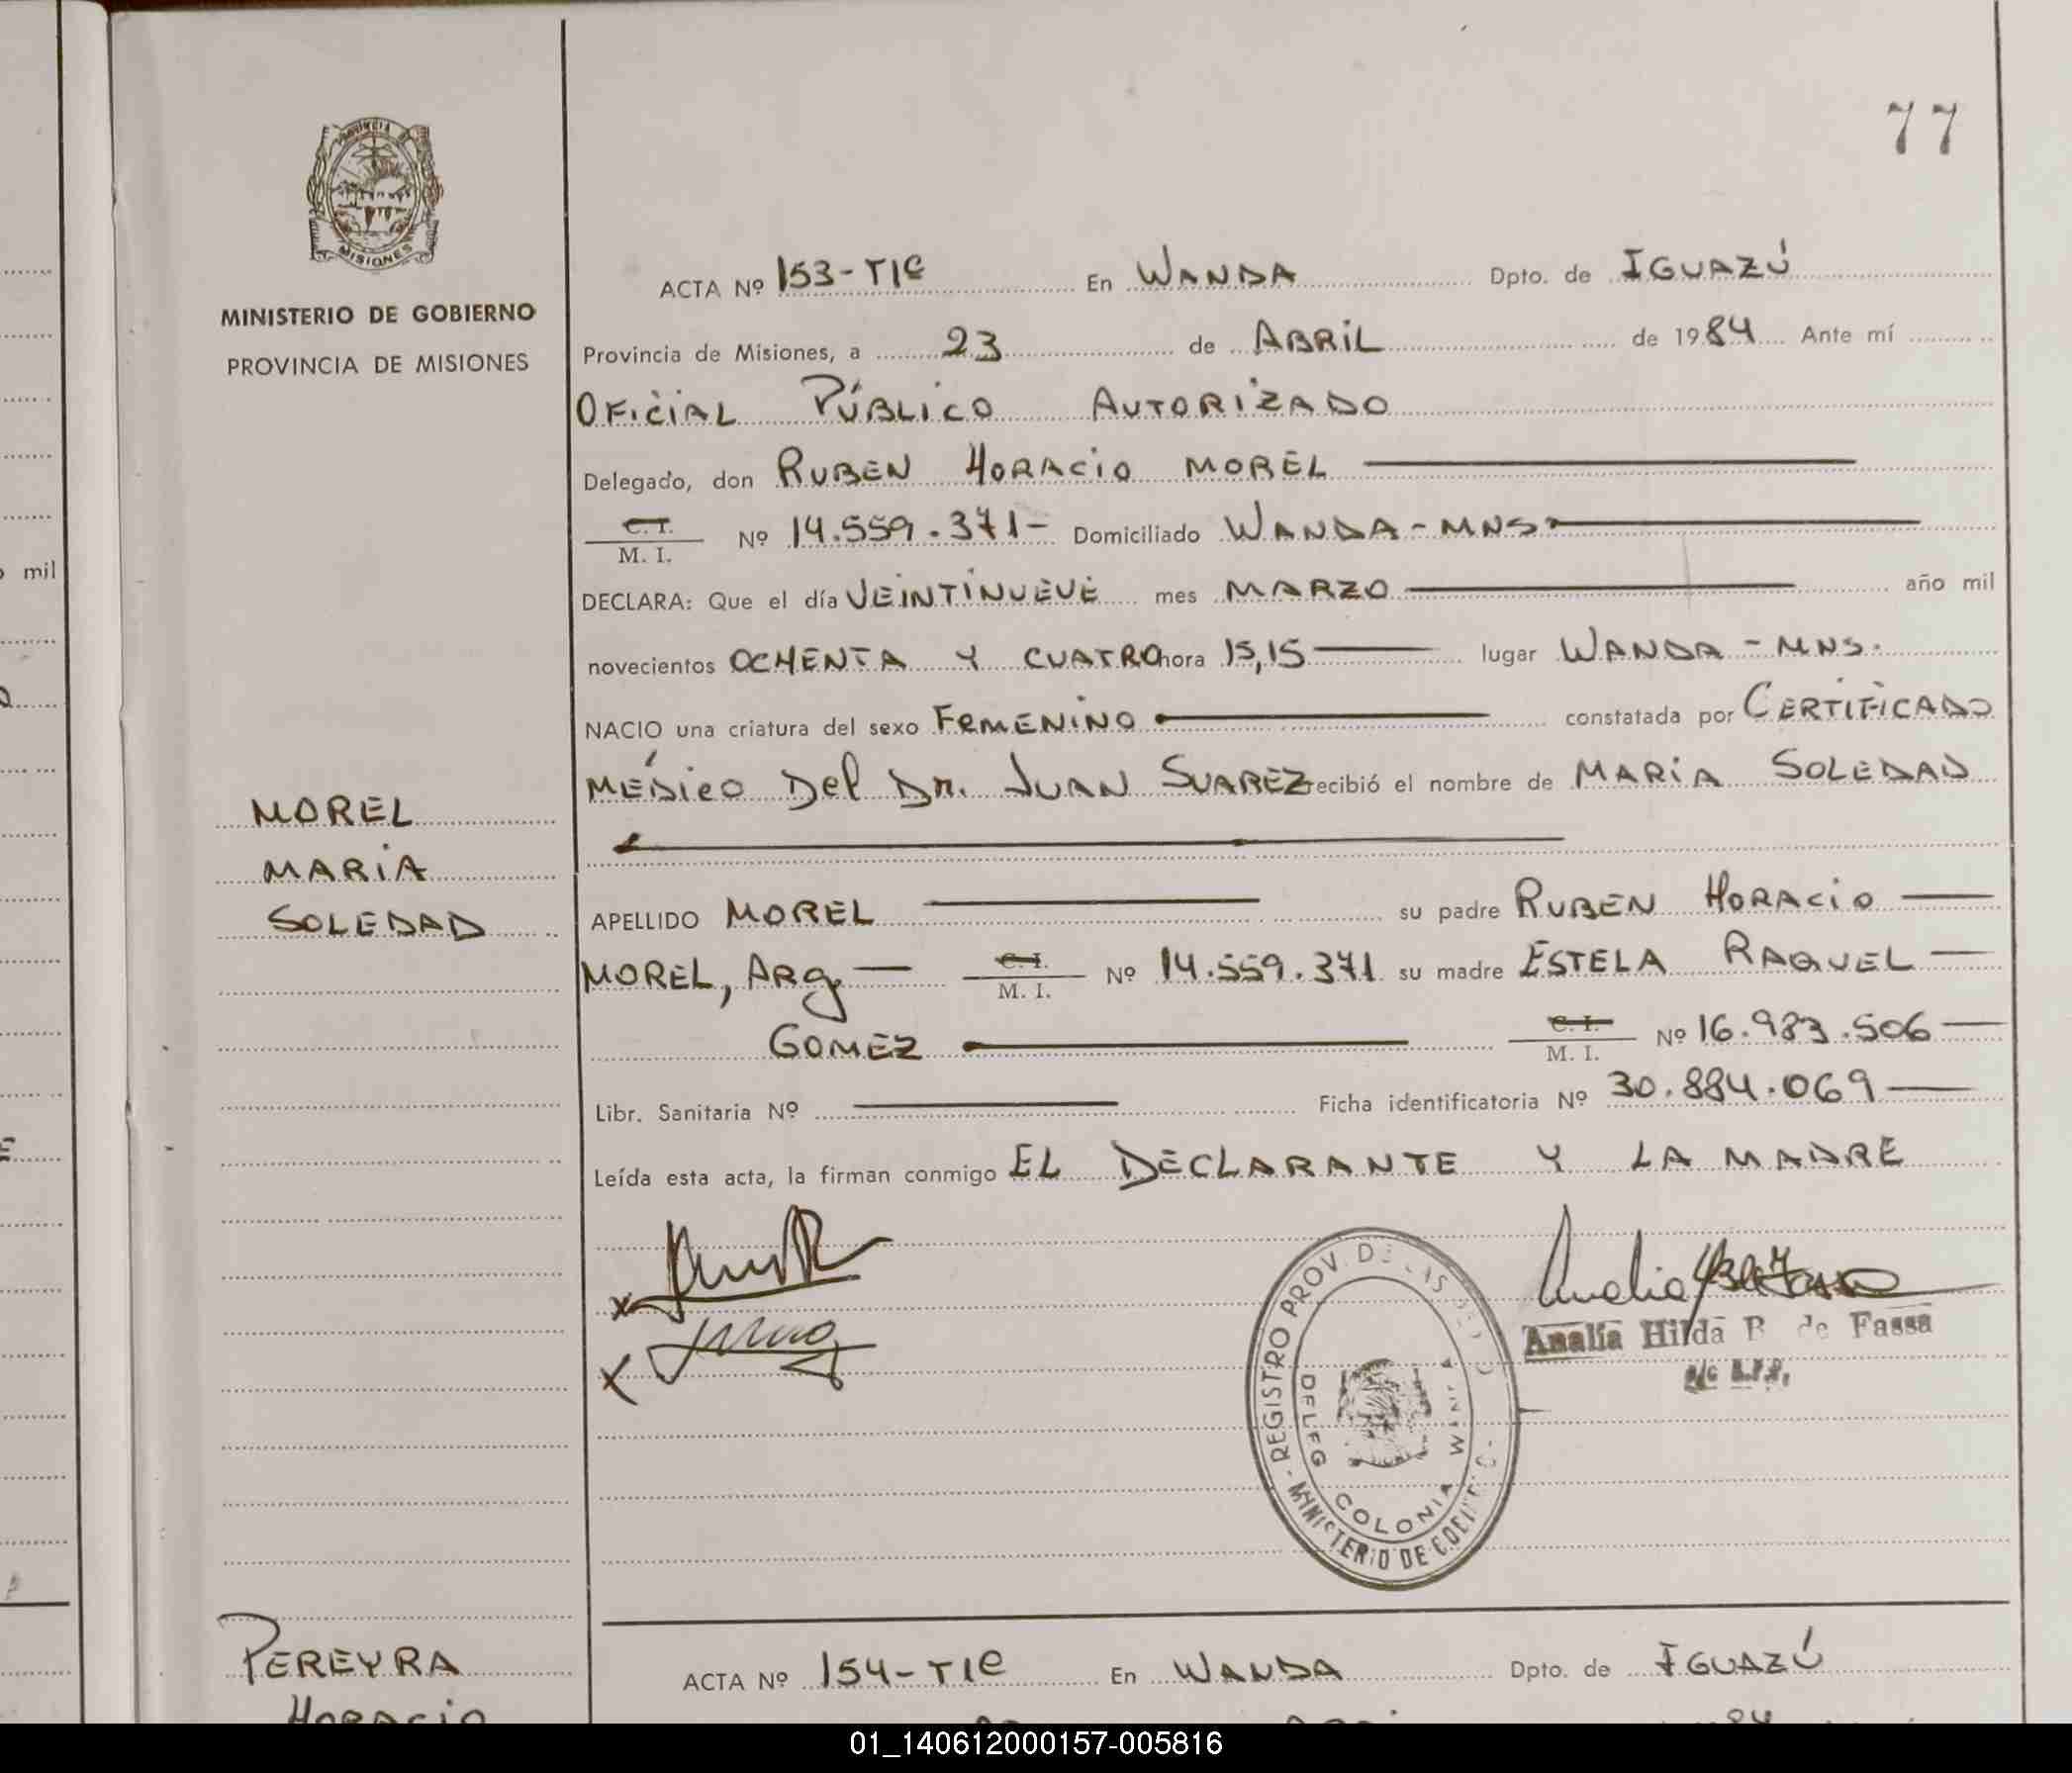 77
PROVINCIA DE
MISIONES
MINISTERIO DE GOBIERNO
PROVINCIA DE MISIONES
ACTA Nº 153-TIC En WANDA Dpto. de IGUAZÚ
Provincia de Misiones, a 23 de ABRIL de 1984 Ante mí
OFICIAL PÚBLICO AUTORIZADO
Delegado, don RUBEN HORACIO MOREL
C. I.
M. I. Nº 14.559.371- Domiciliado WANDA-MNS-
mil
DECLARA: Que el día VEINTINUEVE mes MARZO año mil
novecientos OCHENTA Y CUATRO hora 15,15 lugar WANDA-MNS.
NACIO una criatura del sexo FEMENINO constatada por CERTIFICADO
MÉDICO Del Dr. JUAN SUAREZ recibió el nombre de MARIA SOLEDAD
MOREL
MARIA
SOLEDAD
APELLIDO MOREL su padre RUBEN HORACIO
MOREL, ARg. C. I.
M. I. Nº 14.559.371 su madre ESTELA RAQUEL
GOMEZ C. I.
M. I. Nº 16.983.506
Libr. Sanitaria Nº Ficha identificatoria Nº 30.884.069
Leída esta acta, la firman conmigo EL DECLARANTE Y LA MADRE
Analía Hilda B. de Fassa
REGISTRO PROV. DE LAS
MINISTERIO DE GOBIERNO
DELEG COLONIA WANDA
PEREYRA
HORACIO
ACTA Nº 154-TIC En WANDA Dpto. de IGUAZÚ
84
01_140612000157-005816